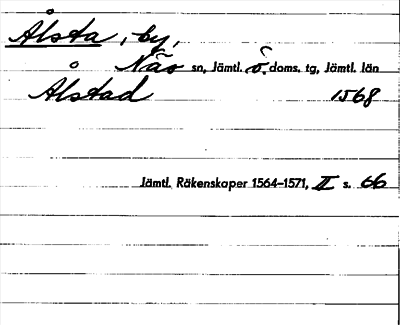 Ålsta, by,
Näs sn, Jämtl. ö. doms. tg, Jämtl. län
Ålstad 1568
Jämtl. Räkenskaper 1564-1571, II s. 66